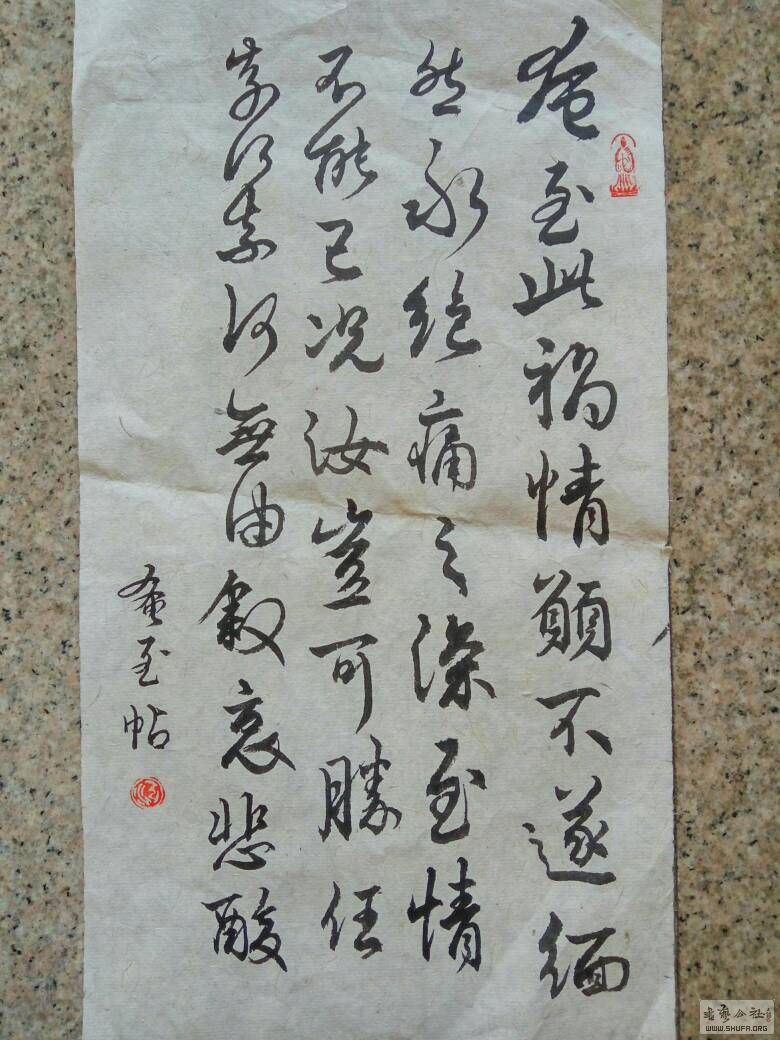 奄至此禍情願不遂緬
然永絕痛之深至情
不能已況汝豈可勝任
奈何奈何無由敘哀悲酸
奄至帖
書藝公社
WWW.SHUFA.ORG